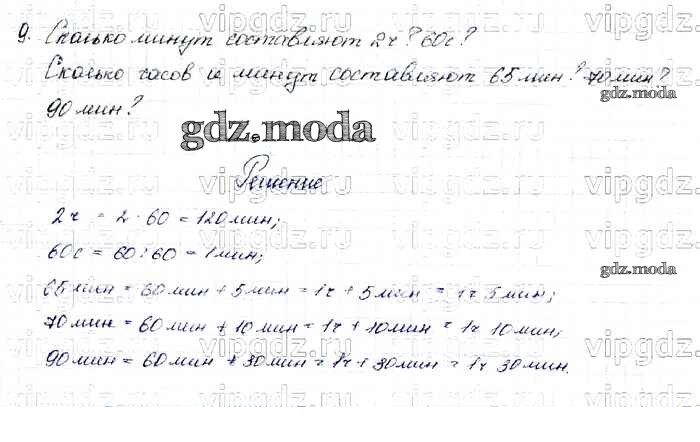 9. Сколько минут составляют 2ч? 60с?
Сколько часов и минут составляют 65мин? 70мин?
90мин?
gdz.moda
Решение
2ч = 2 · 60 = 120мин;
60с = 60 : 60 = 1мин;
65мин = 60мин + 5мин = 1ч + 5мин = 1ч 5мин;
70мин = 60мин + 10мин = 1ч + 10мин = 1ч 10мин;
90мин = 60мин + 30мин = 1ч + 30мин = 1ч 30мин.
gdz.moda
gdz.moda
vipgdz.ru
vipgdz.ru
vipgdz.ru
vipgdz.ru